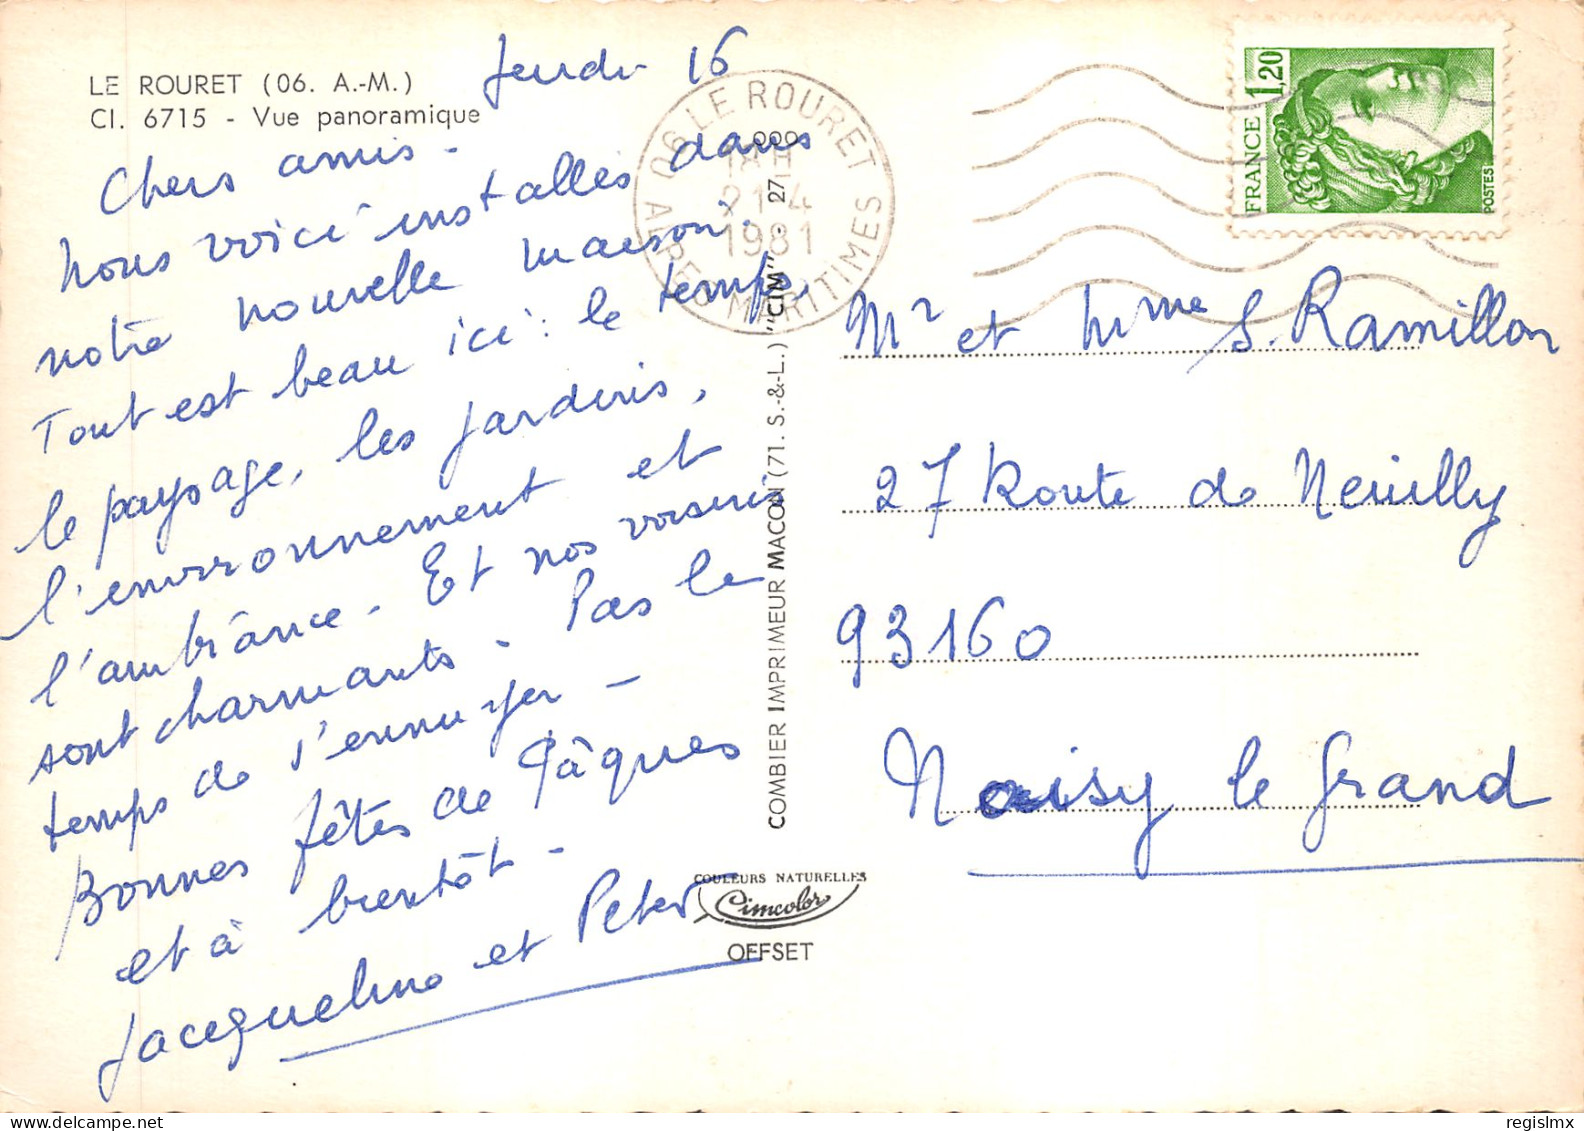 LE ROURET (06. A.-M.)
CI. 6715 - Vue panoramique
Jeudi 16
Chers amis -
Nous voici installés dans
notre nouvelle maison.
Tout est beau ici : le temps,
le paysage, les jardins,
l'environnement et
l'ambiance - Et nos voisins
sont charmants - Pas le
temps de s'ennuyer -
Bonnes fêtes de Pâques
et à bientôt -
Jacqueline et Peter
06 LE ROURET
21-4
1981
ALPES MARITIMES
COMBIER IMPRIMEUR MACON (71. S.-&-L.) "CIM" - 27
COULEURS NATURELLES
Cimcolor
OFFSET
1,20
FRANCE
POSTES
Mr et Mme S. Ramillon
27 Route de Neuilly
93160
Noisy le Grand
regislmx